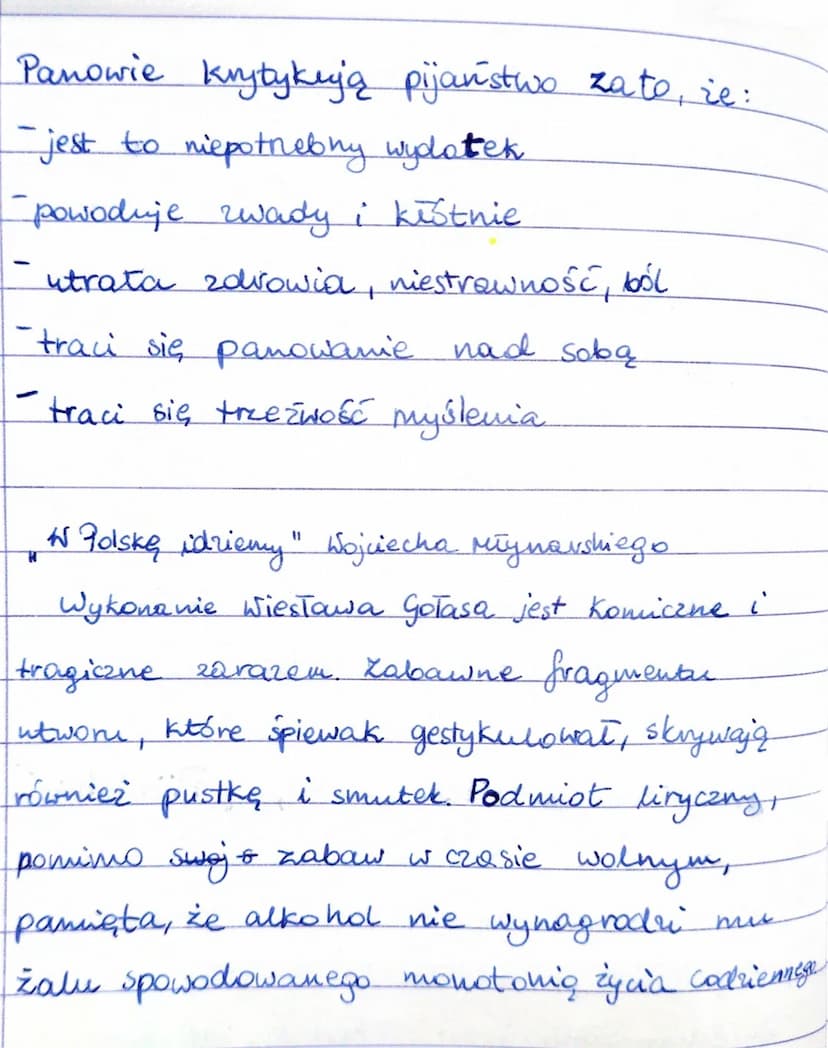 Panowie krytykują pijaństwo za to, że:
- jest to niepotrzebny wydatek
- powoduje zwady i kłótnie
- utrata zdrowia, niestrawność, ból
- traci się panowanie nad sobą
- traci się trzeźwość myślenia
„W Polskę idziemy" Wojciecha Młynarskiego
Wykonanie Wiesława Gołasa jest komiczne i
tragiczne zarazem. Zabawne fragmenty
utworu, które śpiewak gestykulował, skrywają
również pustkę i smutek. Podmiot liryczny,
pomimo swoj zabaw w czasie wolnym,
pamięta, że alkohol nie wynagrodzi mu
żalu spowodowanego monotonią życia codziennego